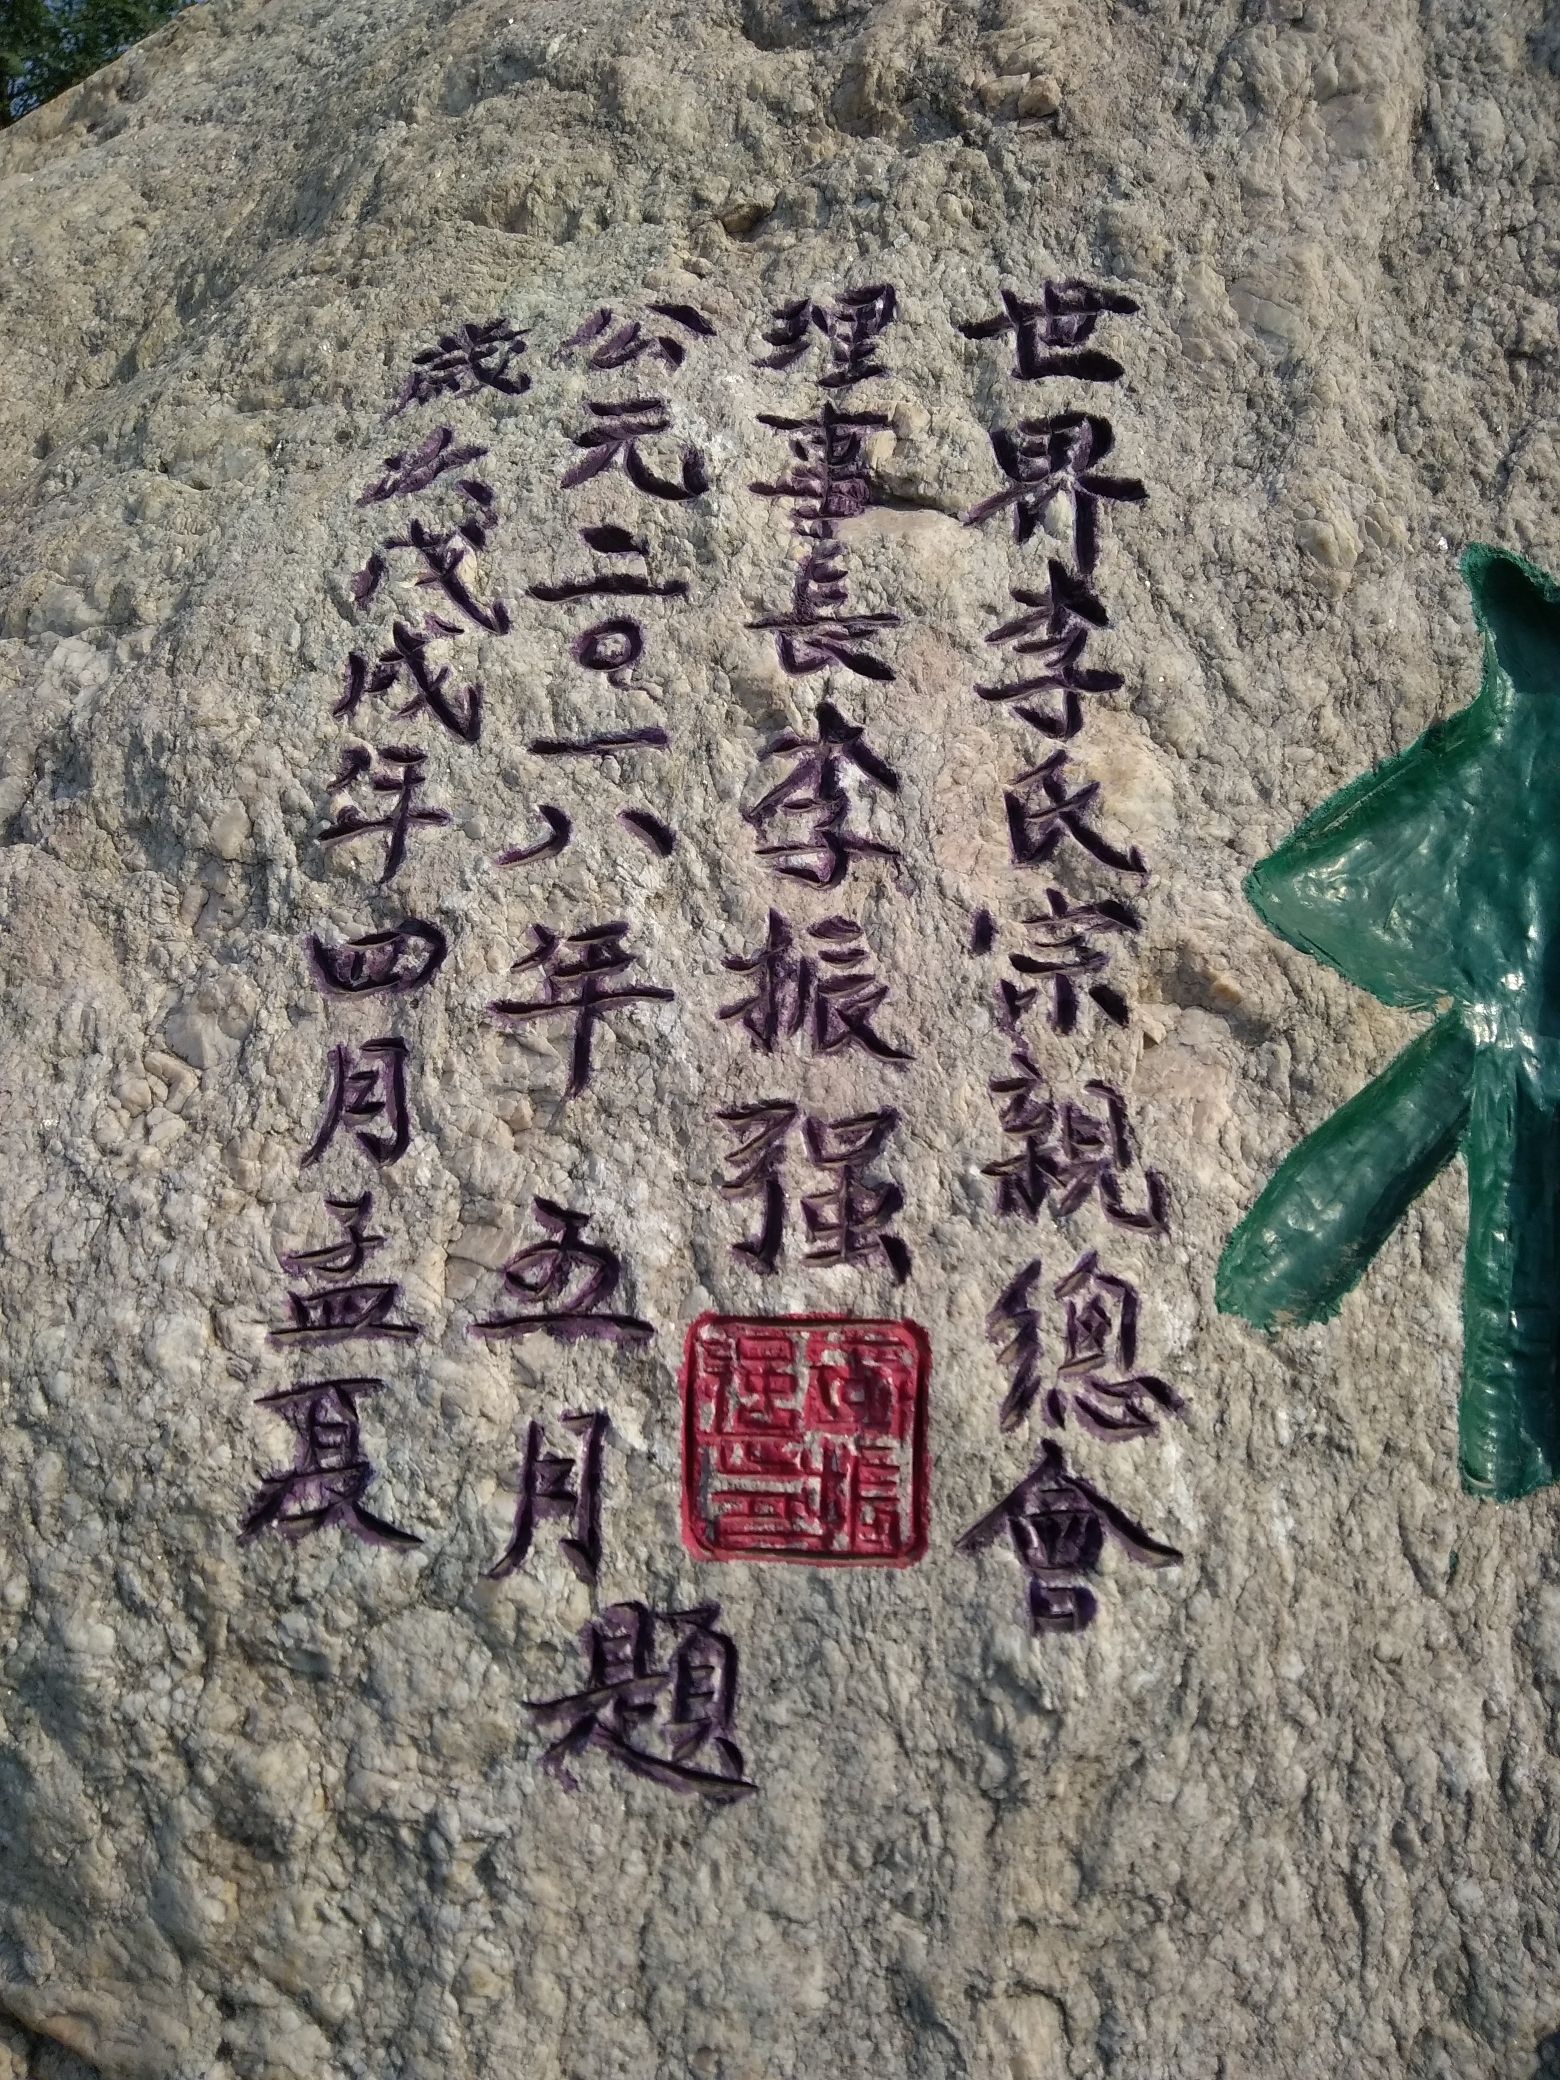 世界李氏宗親總會
理事長李振强
公元二〇一八年五月題
歲次戊戌年四月孟夏